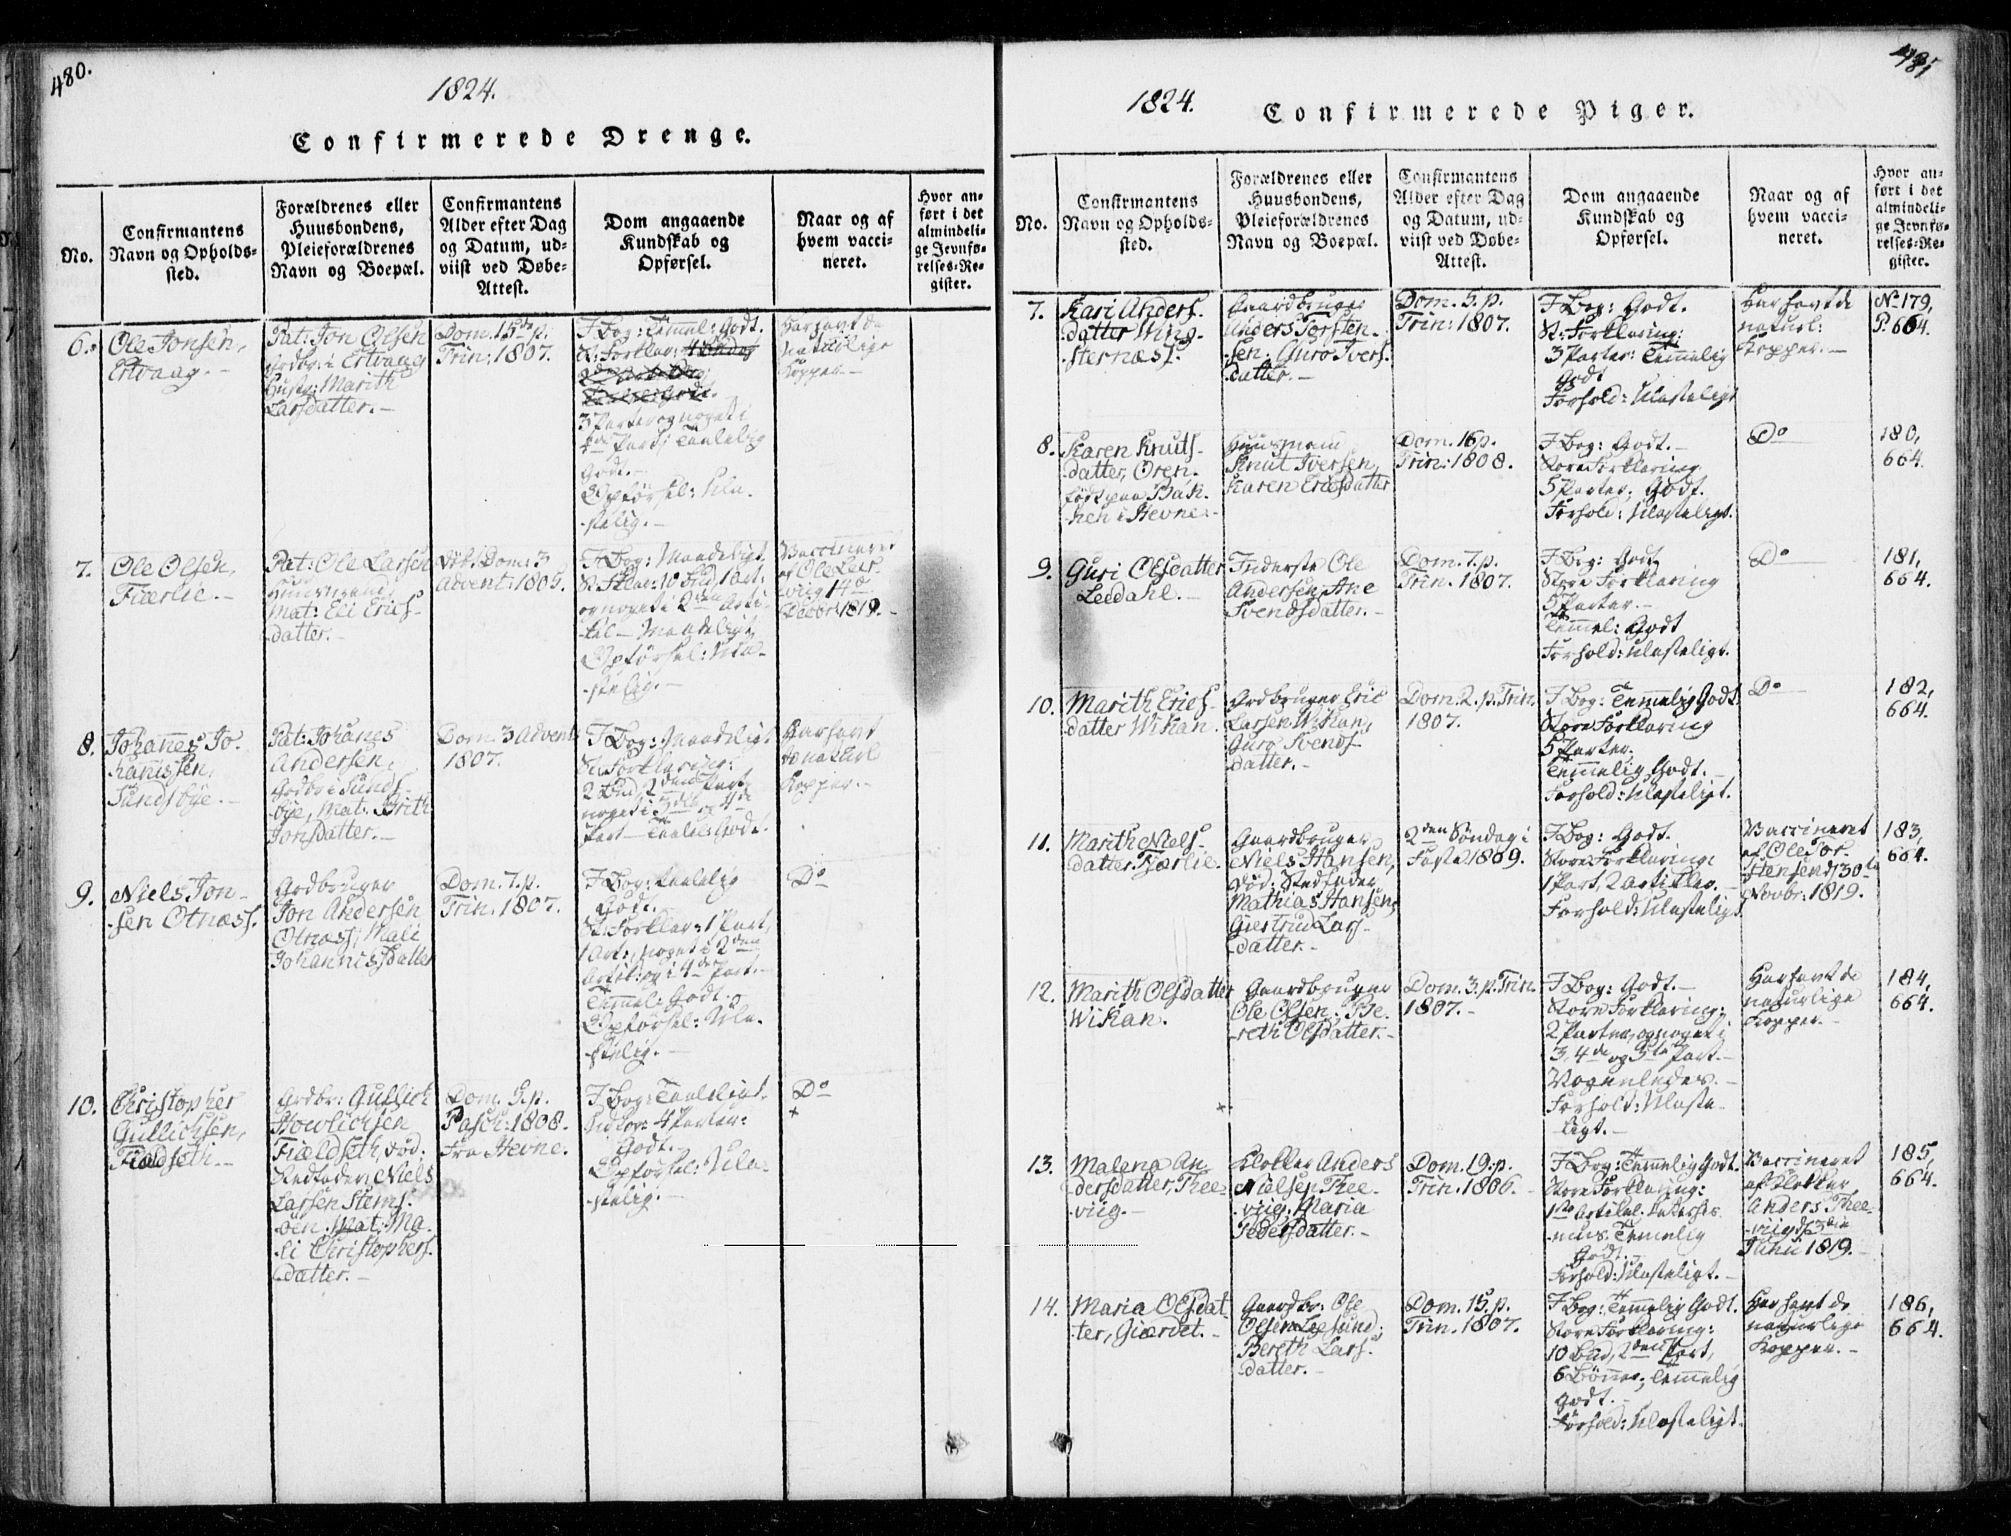 480.
1824.
Confirmerede Drenge.
No.
Confirmantens
Navn og Opholds-
sted.
Forældrenes eller
Huusbondens,
Pleieforældrenes
Navn og Boepæl.
Confirmantens
Alder efter Dag
og Datum, ud-
viist ved Døbe-
Attest.
Dom angaaende
Kundskab og
Opførsel.
Naar og af
hvem vacci-
neret.
Hvor an-
ført i det
almindeli-
ge Jevnfø-
relses-Re-
gister.
6.
Ole Jonsen,
Ertvaag.-
Pat: Jon Olsen
Grdbr: i Ertvaag
Hust: Marith
Larsdatter.-
Dom. 15de p.
Trin: 1807.
I Bog: Temmel: Godt.
St: Forklar:
3 Parter og noget i
4de Part; Taalelig
Godt.-
Opførsel: Ula-
stelig.-
Har havt de
naturlige
Kopper.-
7.
Ole Olsen,
Fiærlie.-
Pat: Ole Larsen
Huusmand,
Mat: Eli Erics-
datter.-
Døbt Dom: 3
Advent: 1805.
I Bog: Maadeligt
og noget i 2den Arti-
kel - Maadeligt
Opførsel: Ula-
stelig.-
Vaccineret
af Ole Leer-
viig 14de
Decbr: 1819.-
8.
Johannes Jo-
hanissen,
Sundsbye.-
Pat: Johanes
Andersen,
Grdbr: i Sunds-
bye, Mat: Brith
Jonsdatter.-
Dom. 3 Advent
1807.
I Bog: Maadeligt
St. Forklaring:
2 Bud, 2den Part
noget i 3die og 4de
Part - Taalel: Godt.
Har havt
de naturl
Kopper.-
9.
Niels Jon-
sen Otnæss.
Grdbruger
Jon Andersen
Otnæss; Mali
Johannisdatter
Dom. 7. p.
Trin. 1807.
I Bog: Taalelig
Godt.-
St: Forklar: 1 Part,
1 Art:, noget i 2den
Artik: og i 4de Part.-
Temmel: Godt.-
Opførsel: Ula-
stelig.-
Do
10.
Christopher
Gullichsen,
Fieldseth.-
Grdbr: Gullich
Howlichsen
Fiældseth, død;
Stedfader, Niels
Larsen Stems-
øen. Mat: Ma-
li Christophers-
datter.-
Dom. 5. p.
Pasch: 1808.
Fra Hevne.
I Bog: Taaleligt.
4 Parter:
Godt.-
Opførsel: Ula-
stelig.-
Do
+
481
1824.
Confirmerede Piger.
No.
Confirmantens
Navn og Opholds-
sted.
Forældrenes eller
Huusbondens,
Pleieforældrenes
Navn og Boepæl.
Confirmantens
Alder efter Dag
og Datum, ud-
viist ved Døbe-
Attest.
Dom angaaende
Kundskab og
Opførsel.
Naar og af
hvem vacci-
neret.
Hvor an-
ført i det
almindeli-
ge Jevnfø-
relses-Re-
gister.
7.
Kari Anders-
datter Wing-
sternæss.
Gaardbruger
Anders Torsten-
sen, Guro Ivers-
datter.-
Dom. 5. p.
Trin: 1807.
I Bog: Godt.
St: Forklaring:
3 Parter: Temmelig
Godt
Forhold: Ulasteligt
Har havt de
naturl:
Kopper.-
No 179,
P. 664.
8.
Karen Knuts-
datter, Oren.
født paa Bak-
ken i Hevne.-
Huusmand
Knut Iversen,
Karen Ericsdatter
Dom. 16 p.
Trin: 1808.
I Bog: Godt.-
Store Forklaring
5 Parter; Godt.
Forhold: Ulasteligt.
Do
180,
664.
9.
Guri Olsdatter
Leedahl.-
Inderste Ole
Andersen, Ane
Svendsdatter.-
Dom. 7. p.
Trin. 1807.
I Bog: Godt,
Store Forklaring
5 Parter.-
Temmel: Godt
Forhold: Ulasteligt.
Do
181,
664.
10.
Marith Erics-
datter Wikan.
Grdbruger Eric
Larsen Wikan,
Guro Svends-
datter.-
Dom. 2. p. Trin.
1807.
I Bog: Temmelig Godt.
Store Forklaring
5 Parter.
Temmelig Godt.-
Forhold: Ulasteligt.
Do
182,
664.
11.
Marith Niels-
datter Fjærlie.
Gaardbruger
Niels Hansen,
død; Stedfader
Mathias Hansen,
Giertrud Lars-
datter.-
2den Søndag i
Faste 1809.
I Bog: Godt.
Store Forklaring:
1 Part, 2 Artikler.-
Forhold: Ulasteligt.
Vaccineret
af Ole Tor-
stensen d: 30te
Novbr: 1819.
183,
664.
12.
Marith Olsdatter
Wikan.
Gaardbruger
Ole Olsen; Be-
reth Olsdatter.-
Dom. 3. p. Trin.
1807.-
I Bog: Godt.-
Store Forklaring;
2 Parter, og noget i
3, 4de og 5te Part.-
Forhold: Ulaste-
ligt.-
Har havt de
naturlige
Kopper.-
184,
664.
13.
Malena An-
dersdatter, Thee-
viig.-
Klokker Anders
Nielsen Thee-
viig; Maria
Pedersdatter.-
Dom. 19. p.
Trin. 1806.-
I Bog: Temmelig Godt.
Store Forklaring:
1ste Artikel. Cateches-
mus. Temmelig
Godt.-
Forhold: Ulasteligt.-
Vaccineret
af Klokker
Anders Thee-
viig d: 3die
Juni 1819.-
185,
664.
14.
Maria Olsdat-
ter, Giærdet.-
Gaardbr: Ole
Olsen Leesund;
Bereth Lars-
datter.-
Dom. 15. p.
Trin. 1807.
I Bog: Temmelig Godt.
Store Forklaring:
10 Bud, 2den Part,
6 Bønner; Temmelig
Godt.-
Forhold: Ulasteligt.
Har havt de
naturlige
Kopper.-
186,
664.